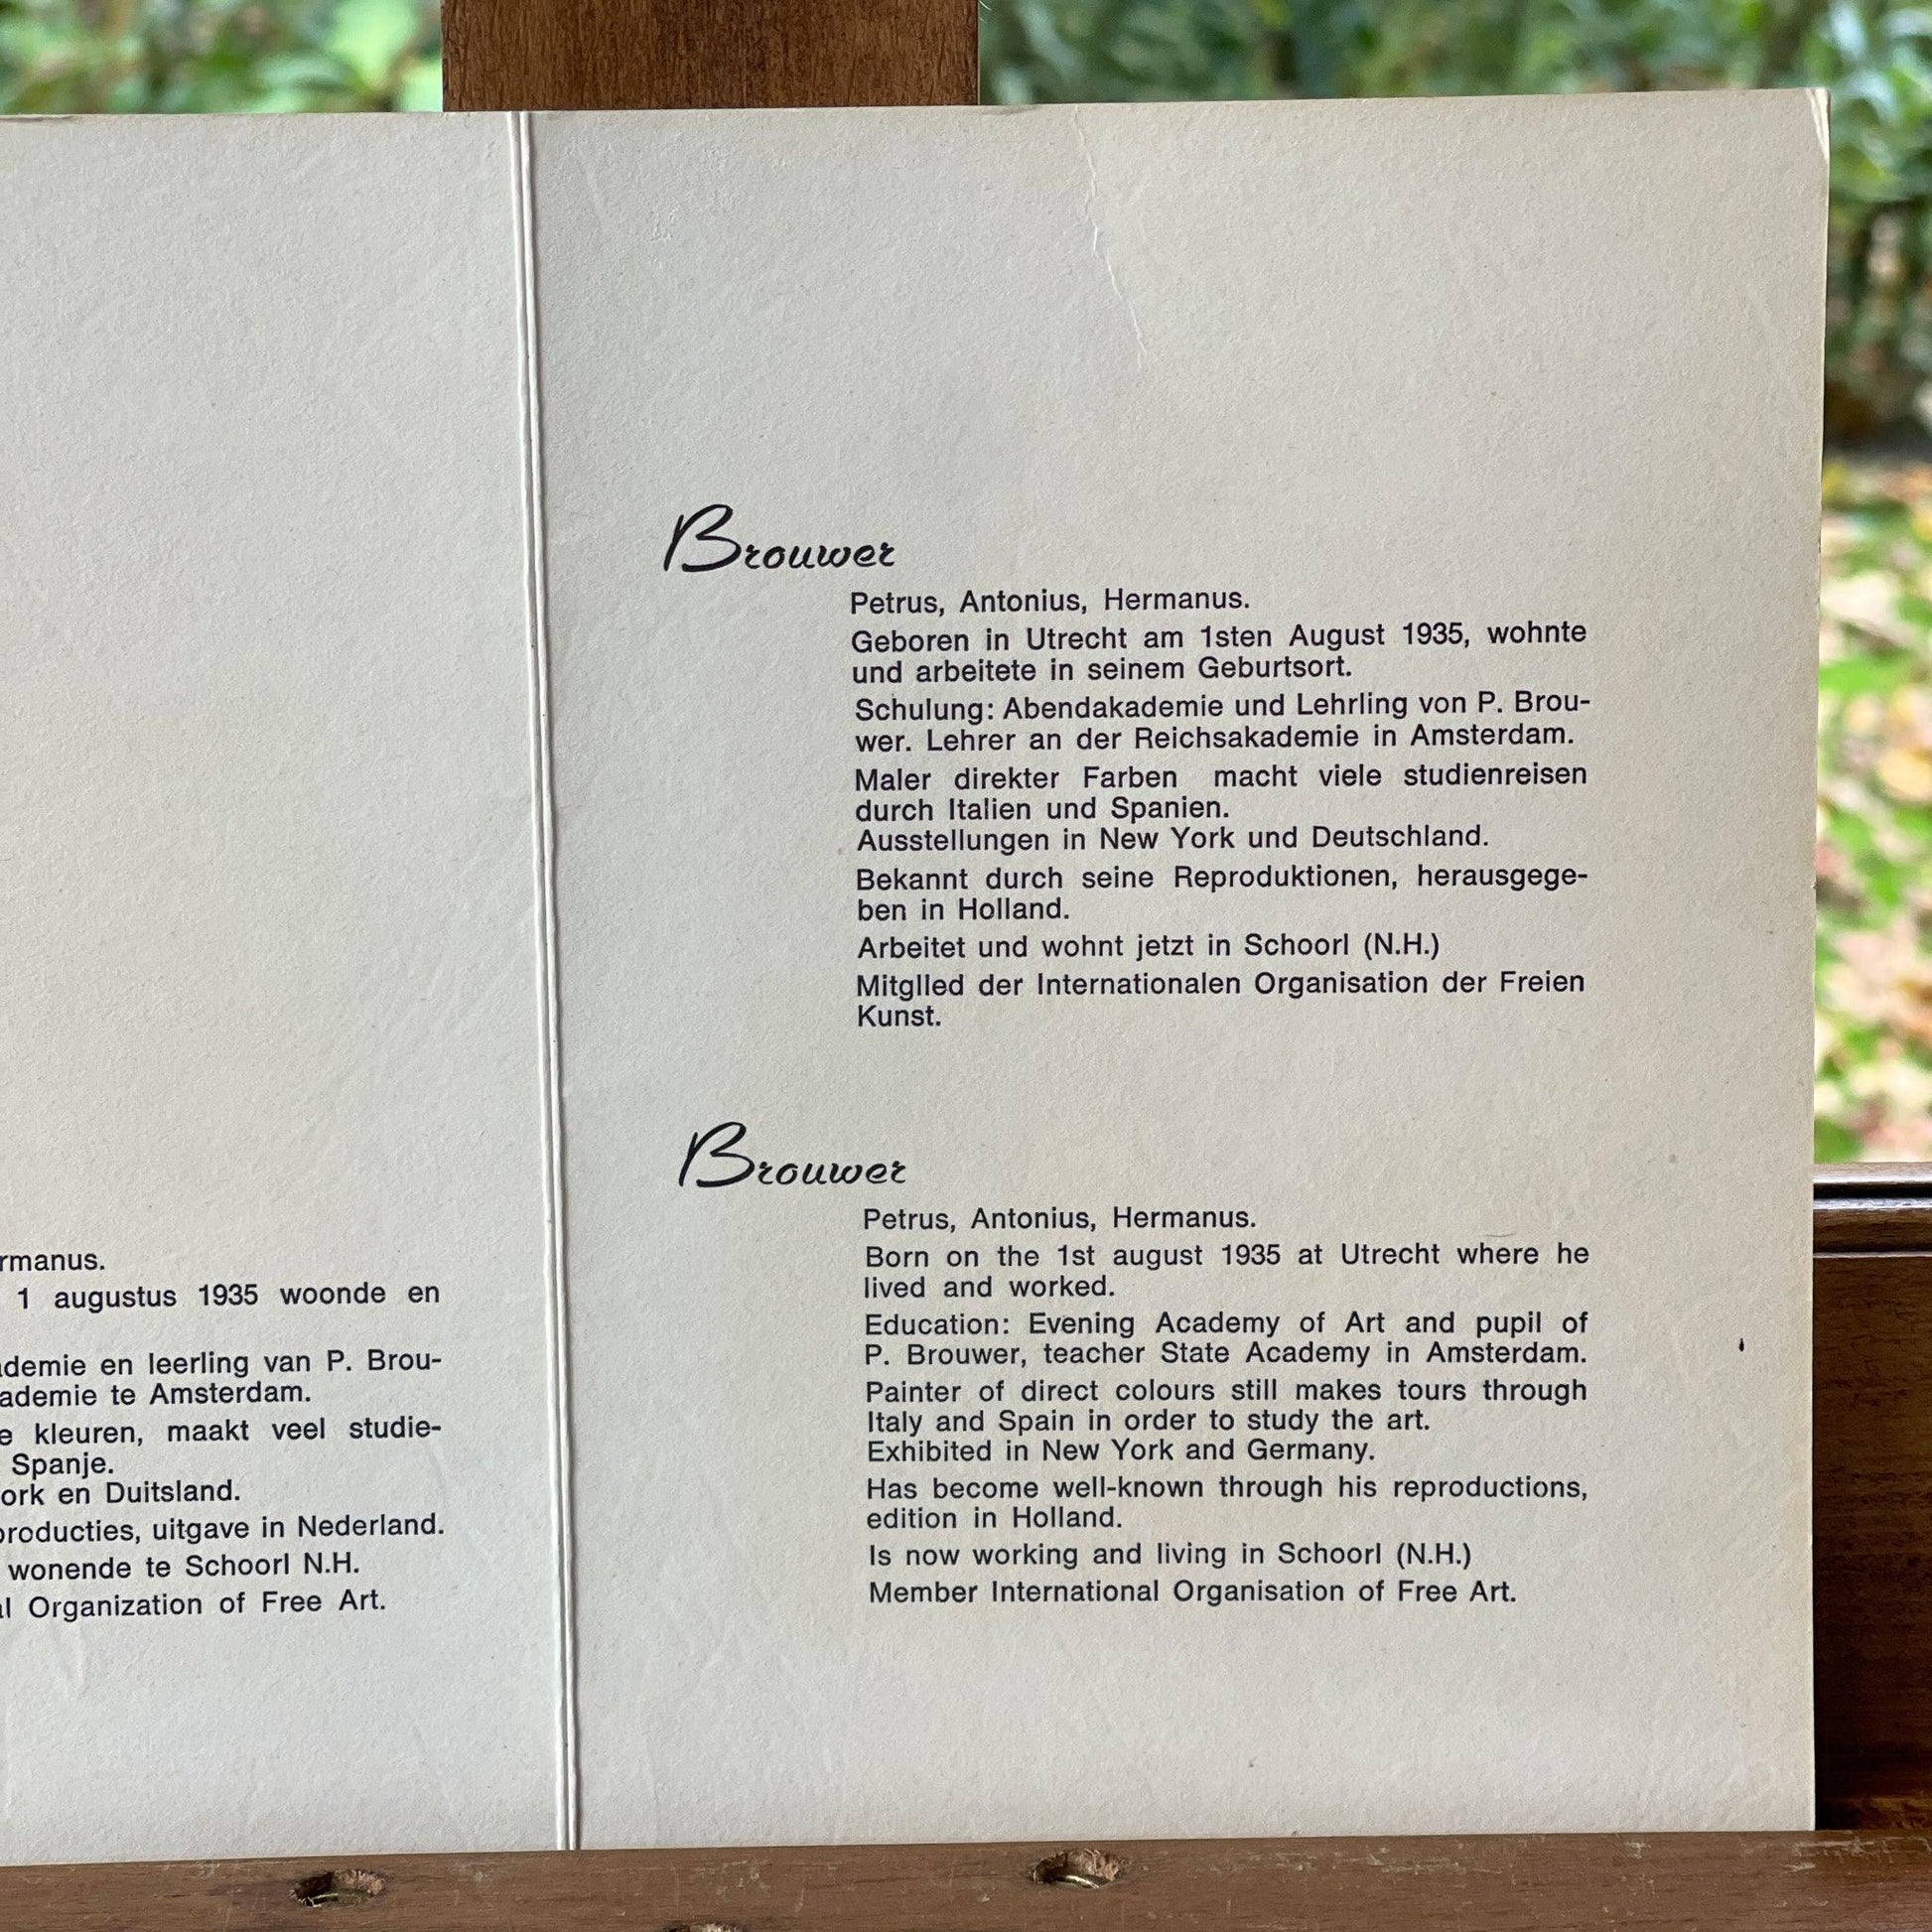 rmanus.
1 augustus 1935 woonde en
demie en leerling van P. Brou-
ademie te Amsterdam.
e kleuren, maakt veel studie-
Spanje.
ork en Duitsland.
producties, uitgave in Nederland.
wonende te Schoorl N.H.
al Organization of Free Art.
Brouwer
Petrus, Antonius, Hermanus.
Geboren in Utrecht am 1sten August 1935, wohnte
und arbeitete in seinem Geburtsort.
Schulung: Abendakademie und Lehrling von P. Brou-
wer. Lehrer an der Reichsakademie in Amsterdam.
Maler direkter Farben macht viele studienreisen
durch Italien und Spanien.
Ausstellungen in New York und Deutschland.
Bekannt durch seine Reproduktionen, herausgege-
ben in Holland.
Arbeitet und wohnt jetzt in Schoorl (N.H.)
Mitglled der Internationalen Organisation der Freien
Kunst.
Brouwer
Petrus, Antonius, Hermanus.
Born on the 1st august 1935 at Utrecht where he
lived and worked.
Education: Evening Academy of Art and pupil of
P. Brouwer, teacher State Academy in Amsterdam.
Painter of direct colours still makes tours through
Italy and Spain in order to study the art.
Exhibited in New York and Germany.
Has become well-known through his reproductions,
edition in Holland.
Is now working and living in Schoorl (N.H.)
Member International Organisation of Free Art.